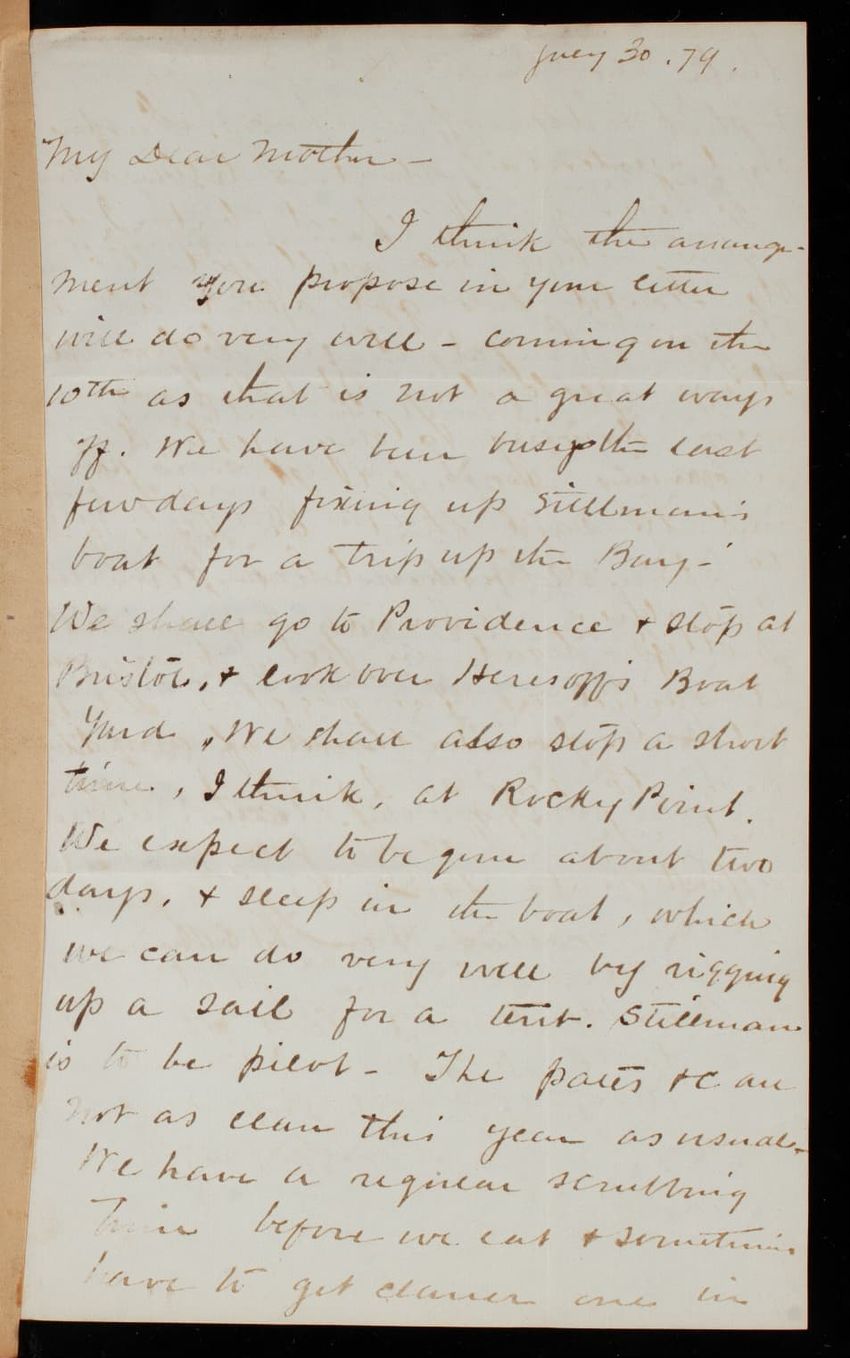 July 30. 79.
My Dear Mother -
I think the arrange-
ment you propose in your letter
will do very well - coming on the
10th as that is not a great ways
off. We have been busy the last
few days fixing up Stillman's
boat for a trip up the Bay -
We shall go to Providence & stop at
Bristol, & look over Heresoff's Boat
Yard. We shall also stop a short
time, I think, at Rocky Point.
We expect to be gone about two
days, & sleep in the boat, which
we can do very well by rigging
up a sail for a tent. Stillman
is to be pilot - The &c are
not as clean this year as usual.
We have a regular scrubbing
time before we eat & sometimes
have to get cleaner one in